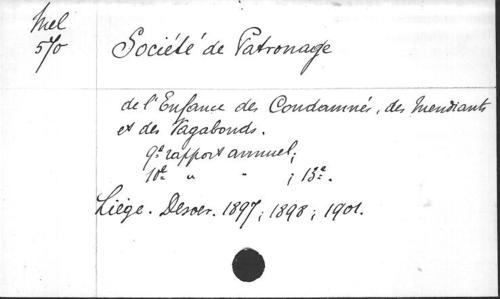 Mel
570
Société de Patronage
de l'Enfance des Condamnés, des Mendiants
et des Vagabonds.
9e rapport annuel;
10e " " ; 13e.
Liége. Desoer. 1897; 1898; 1901.